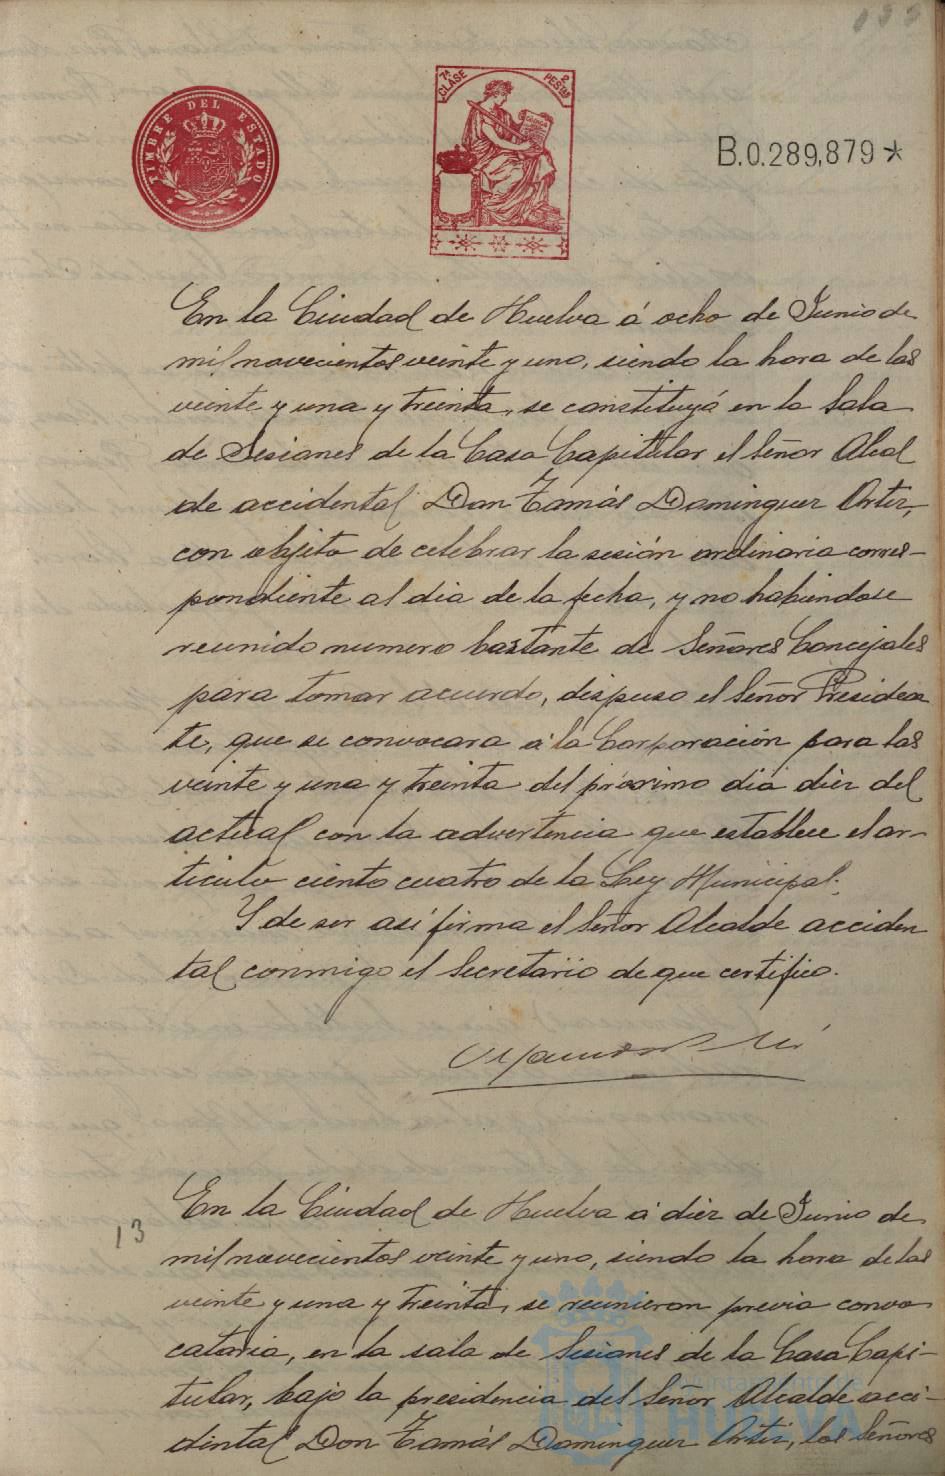 TIMBRE DEL ESTADO
7ª CLASE 2 PESTAS
B.0.289,879*
En la Ciudad de Huelva á ocho de Junio de
mil novecientos veinte y uno, siendo la hora de las
veinte y una y treinta, se constituyó en la Sala
de Sesiones de la Casa Capitular el Señor Alcal
de accidental Don Tomás Dominguez Ortiz,
con objeto de celebrar la sesión ordinaria corres-
pondiente al dia de la fecha, y no habiendose
reunido numero bastante de Señores Concejales
para tomar acuerdo, dispuso el Señor Presiden
te, que se convocara á la Corporación para las
veinte y una y treinta del próximo dia diez del
actual con la advertencia que establece el ar-
ticulo ciento cuatro de la Ley Municipal.
Y de ser asi firma el Señor Alcalde acciden
tal conmigo el Secretario de que certifico.
En la Ciudad de Huelva á diez de Junio de
13
mil novecientos veinte y uno, siendo la hora de las
veinte y una y treinta, se reunieron previa convo
catoria, en la sala de Sesiones de la Casa Capi-
tular, bajo la presidencia del Señor Alcalde acci-
dental Don Tomás Dominguez Ortiz, los Señores
Ayuntamiento de
HUELVA